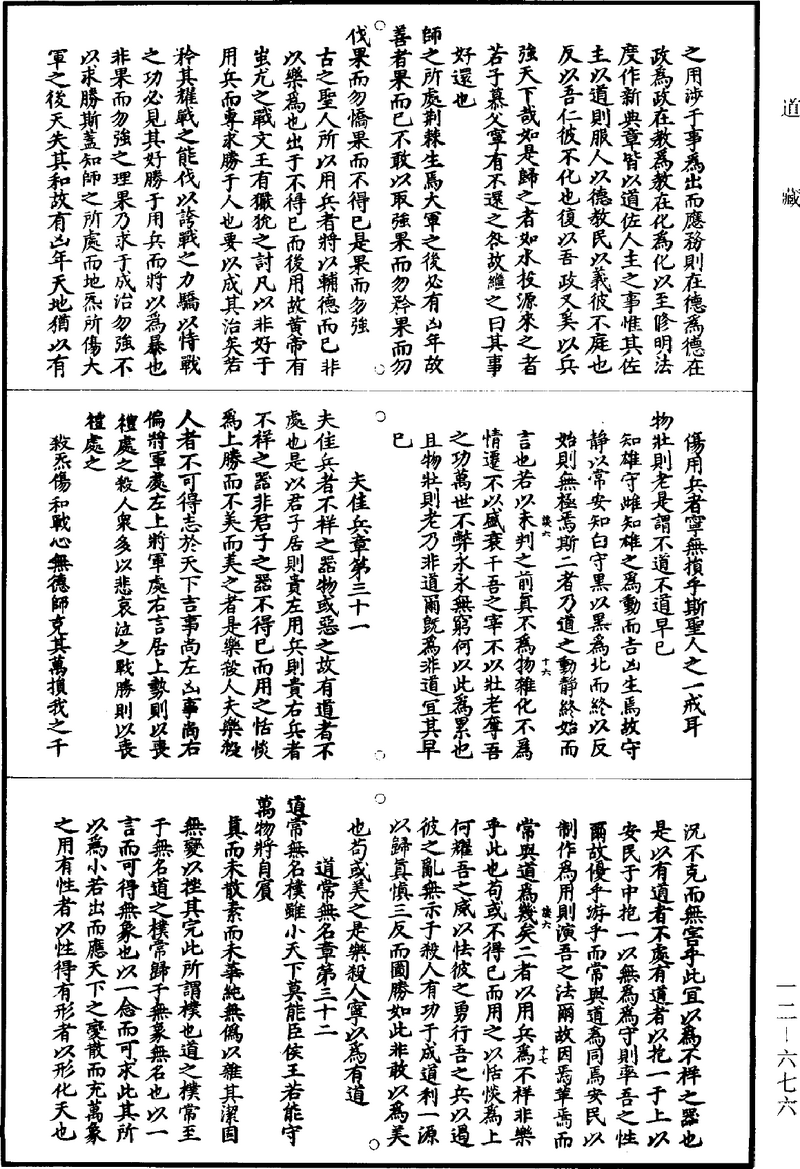 道藏
一二－六七六
之用涉于事為出而應務則在德為德在
政為政在教為教在化為化以至修明法
度作新典章皆以道佐人主之事惟其佐
主以道則服人以德教民以義彼不庭也
反以吾仁彼不化也復以吾政又奚以兵
強天下哉如是歸之者如水投源來之者
若子慕父寧有不還之咎故繼之曰其事
好還也
師之所處荆棘生焉大軍之後必有凶年故
善者果而已不敢以取強果而勿矜果而勿
伐果而勿憍果而不得已是果而勿強
古之聖人所以用兵者將以輔德而已非
以樂為也出于不得已而後用故黄帝有
蚩尤之戰文王有玁狁之討凡以非好于
用兵而專求勝于人也要以成其治矣若
矜其耀戰之能伐以誇戰之力驕以恃戰
之功必見其好勝于用兵而將以為暴也
非果而勿強之理果乃求于成治勿強不
以求勝斯蓋知師之所處而地炁所傷大
軍之後天失其和故有凶年天地猶以有
傷用兵者寧無損乎斯聖人之一戒耳
物壯則老是謂不道不道早已
知雄守雌知雄之為動而吉凶生焉故守
静以常安知白守黑以黑為北而終以反
始則無極焉斯二者乃道之動静終始而
談六
十六
言也若以未判之前真不為物雜化不為
情遷不以盛衰干吾之宰不以壯老奪吾
之功萬世不弊永永無窮何以此為累也
且物壯則老乃非道爾既為非道宜其早
已
夫佳兵章第三十一
夫佳兵者不祥之器物或惡之故有道者不
處也是以君子居則貴左用兵則貴右兵者
不祥之器非君子之器不得已而用之恬惔
為上勝而不美而美之者是樂殺人夫樂殺
人者不可得志於天下吉事尚左凶事尚右
偏將軍處左上將軍處右言居上勢則以喪
禮處之殺人衆多以悲哀泣之戰勝則以喪
禮處之
殺炁傷和戰心無德師克其萬損我之千
況不克而無害乎此宜以為不祥之器也
是以有道者不處有道者以抱一于上以
安民于中抱一以無為為守則率吾之性
爾故優乎游乎而常與道為同焉安民以
制作為用則演吾之法爾故因焉革焉而
談六
十七
常與道為幾矣二者以用兵為不祥非樂
乎此也苟或不得已而用之以恬惔為上
何耀吾之威以怯彼之勇行吾之兵以遏
彼之亂無示于殺人有功于成道利一源
以歸真慎三反而圖勝如此非敢以為美
也苟或美之是樂殺人寧以為有道
道常無名章第三十二
道常無名樸雖小天下莫能臣侯王若能守
萬物將自賓
真而未散素而未華純無偽以雜其潔固
無變以挫其完此所謂樸也道之樸常至
于無名道之樸常歸于無象無名也以一
言而可得無象也以一念而可求此其所
以為小若出而應天下之變散而充萬象
之用有性者以性得有形者以形化天也